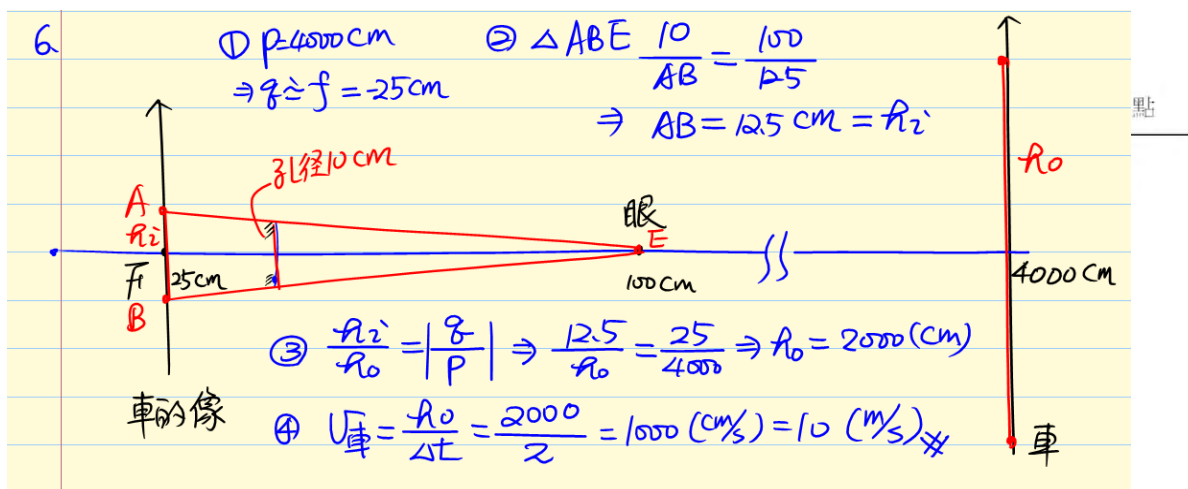 6.
① p=4000cm
⇒ q≒f = -25cm
② △ABE 10/AB = 100/125
⇒ AB = 12.5 cm = hi
點
孔徑10cm
A
hi
F1
25cm
B
眼
E
100cm
ho
4000cm
③ hi/ho = |q/p| ⇒ 12.5/ho = 25/4000 ⇒ ho = 2000(cm)
車的像
④ V車 = ho/Δt = 2000/2 = 1000 (cm/s) = 10 (m/s)
車